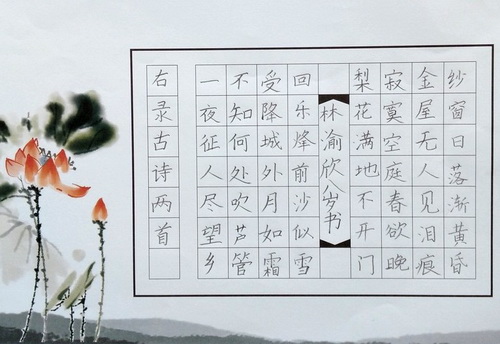 纱窗日落渐黄昏
金屋无人见泪痕
寂寞空庭春欲晚
梨花满地不开门
林渝欣八岁书
回乐烽前沙似雪
受降城外月如霜
不知何处吹芦管
一夜征人尽望乡
右录古诗两首